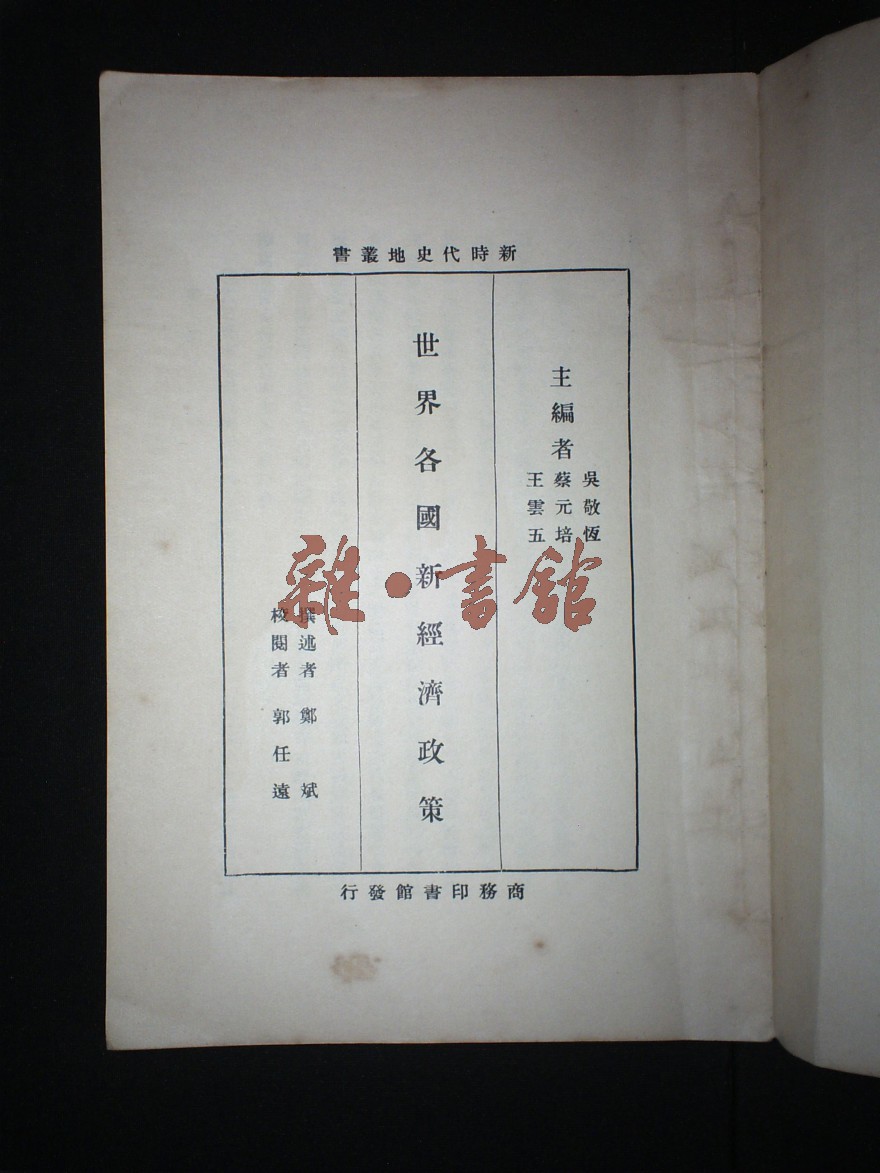 新時代史地叢書
主編者
吳敬恆
蔡元培
王雲五
世界各國新經濟政策
撰述者 鄭斌
校閱者 郭任遠
商務印書館發行
雜·書館